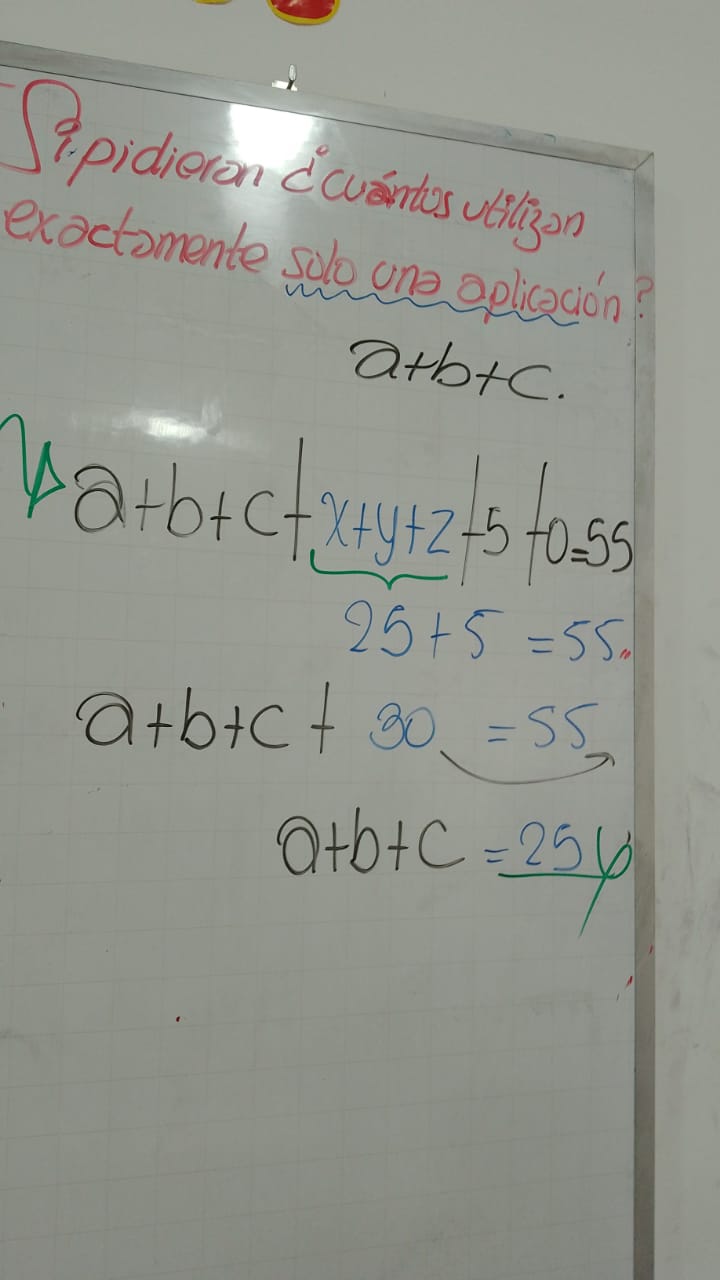 Si pidieran ¿cuántos utilizan
exactamente solo una aplicación?
a+b+c.
a+b+c+x+y+z+5+0=55
25+5 =55
a+b+c+ 30 =55
a+b+c =25